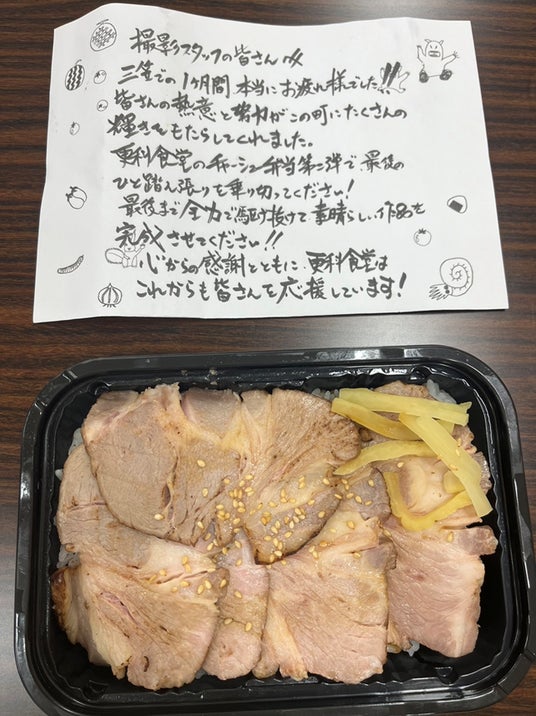 撮影スタッフの皆さんへ
三笠での1ヶ月間 本当にお疲れ様でした!!
皆さんの熱意と努力がこの町にたくさんの
輝きをもたらしてくれました。
更科食堂のチャーシュー弁当第二弾で、最後の
ひと踏ん張りを乗り切ってください!
最後まで全力で駆け抜けて素晴らしい作品を
完成させてください!!
心からの感謝とともに、更科食堂は
これからも皆さんを応援しています!